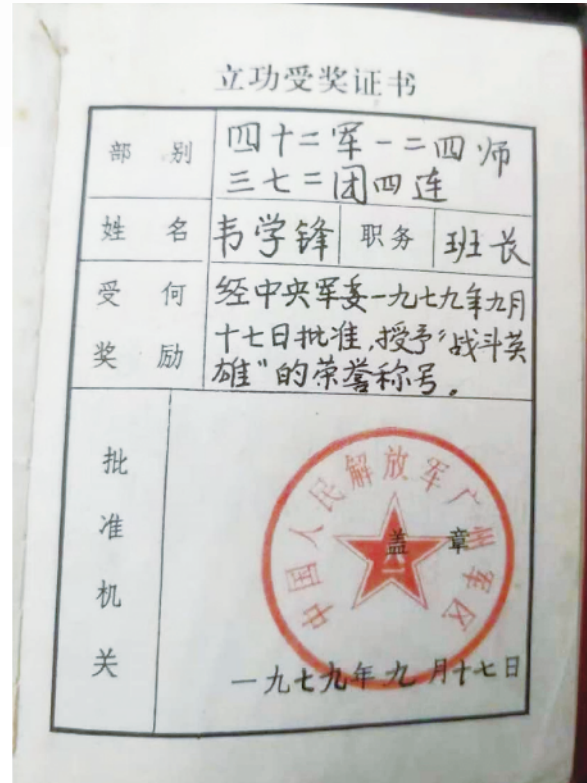 立功受奖证书
部别
四十二军一二四师
三七二团四连
姓名 韦学锋 职务 班长
受何
奖励
经中央军委一九七九年九月
十七日批准,授予"战斗英
雄"的荣誉称号。
批准机关
中国人民解放军广州军区
盖章
一九七九年九月十七日